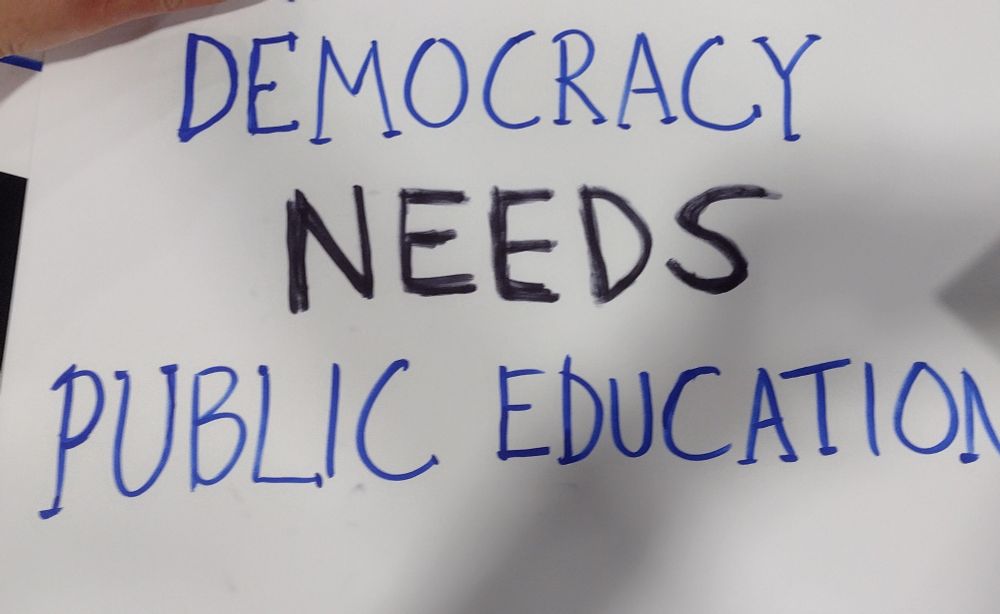 DEMOCRACY
NEEDS
PUBLIC EDUCATION